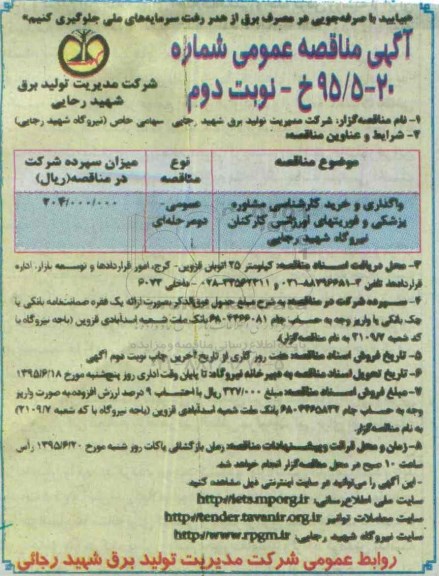 «بیایید با صرفه‌جویی در مصرف برق از هدر رفت سرمایه‌های ملی جلوگیری کنیم»
آگهی مناقصه عمومی شماره
۹۵/۵-۲۰ خ - نوبت دوم
شرکت مدیریت تولید برق
شهید رجایی
۱- نام مناقصه‌گزار: شرکت مدیریت تولید برق شهید رجایی سهامی خاص (نیروگاه شهید رجایی)
۲- شرایط و عناوین مناقصه:
موضوع مناقصه
نوع مناقصه
میزان سپرده شرکت در مناقصه(ریال)
واگذاری و خرید کارشناسی مشاوره
پزشکی و فوریتهای اورژانسی کارکنان
نیروگاه شهید رجایی
عمومی-
دومرحله‌ای
۲۰۴/۰۰۰/۰۰۰
۳- محل دریافت اسناد مناقصه: کیلومتر ۲۵ اتوبان قزوین- کرج، امور قراردادها و توسعه بازار، اداره
قراردادها، تلفن ۳-۸۸۷۹۶۶۸۱-۰۲۱ و ۳۳۵۶۲۳۱۱-۰۲۸ داخلی ۶۰۷۳
۴- سپرده شرکت در مناقصه: به شرح مبلغ جدول فوق‌الذکر بصورت ارائه یک فقره ضمانتنامه بانکی یا
چک بانکی یا واریز وجه به حساب جام ۶۸۰۴۳۶۶۰۸۱ بانک ملت شعبه اسدآبادی قزوین (باجه نیروگاه با
کد شعبه ۲۱۰۹/۷) به نام مناقصه‌گزار.
۵- تاریخ فروش اسناد مناقصه: هفت روز کاری از تاریخ آخرین چاپ نوبت دوم آگهی
۶- تاریخ تحویل اسناد مناقصه به دبیرخانه نیروگاه: تا پایان وقت اداری روز پنج‌شنبه مورخ ۱۳۹۵/۶/۱۸
۷- مبلغ فروش اسناد مناقصه: مبلغ ۳۲۷/۰۰۰ ریال با احتساب ۹ درصد ارزش افزوده به صورت واریز
وجه به حساب جام ۶۸۰۴۴۶۵۸۳۷ بانک ملت شعبه اسدآبادی قزوین (باجه نیروگاه با کد شعبه ۲۱۰۹/۷)
به نام مناقصه‌گزار.
۸- زمان و محل قرائت وپیشنهادات مناقصه: زمان بازگشائی پاکات روز شنبه مورخ ۱۳۹۵/۶/۲۰ رأس
ساعت ۱۰ صبح در محل مناقصه‌گزار انجام خواهد شد.
- این آگهی را می‌توانید در سایت اینترنتی ذیل مشاهده کنید:
سایت ملی اطلاع‌رسانی: http://iets.mporg.ir
سایت معاملات توانیر http://tender.tavanir.org.ir
سایت نیروگاه شهید رجایی: http://www.rpgm.ir
روابط عمومی شرکت مدیریت تولید برق شهید رجائی